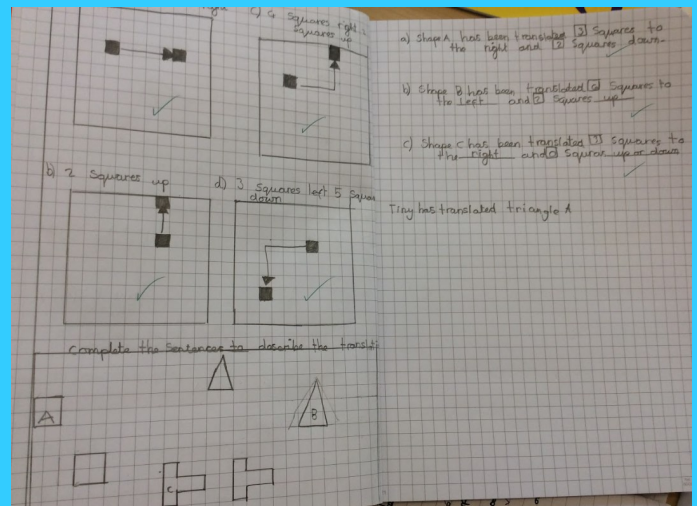 c) 4 Squares right 2
Squares up
b) 2 Squares up
d) 3 Squares left 5 Squar
down
Complete the sentences to describe the translati
A
B
C
a) Shape A has been translated 3 Squares to
the right and 2 Squares down.
b) Shape B has been translated 6 Squares to
the Left and 2 Squares up
c) Shape C has been translated 7 Squares to
the right and 0 Squares up or down
Tiny has translated triangle A